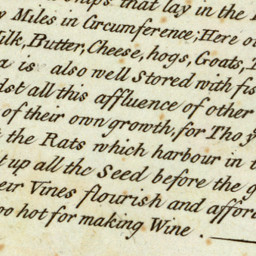 ships that lay in the
Miles in Circumference; Here
Milk, Butter, Cheese, hogs, Goats,
is also well Stored with fis
dst all this affluence of other
of their own growth, for Tho y
the Rats which harbour in t
t up all the Seed before the g
eir Vines flourish and affor
oo hot for making Wine.